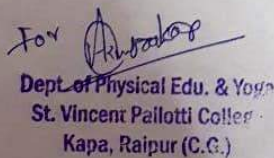 For
Dept. of Physical Edu. & Yoga
St. Vincent Pallotti Colleg
Kapa, Raipur (C.G.)